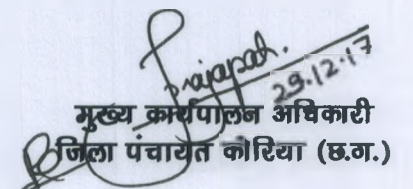 Prajapati.
29.12.17
मुख्य कार्यपालन अधिकारी
जिला पंचायत कोरिया (छ.ग.)